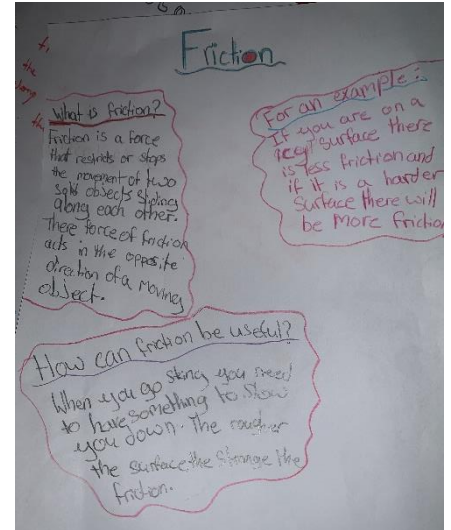 Friction
the
What is friction?
Friction is a force
that restricts or stops
the movement of two
objects sliding
along each other.
There force of friction
acts in the opposite
direction of a moving
object.
For an example:
If you are on a
icey surface there
is less friction and
if it is a harder
surface there will
be more friction
How can friction be useful?
When you go skiing you need
to have something to slow
you down. The rougher
the surface the strange the
friction.